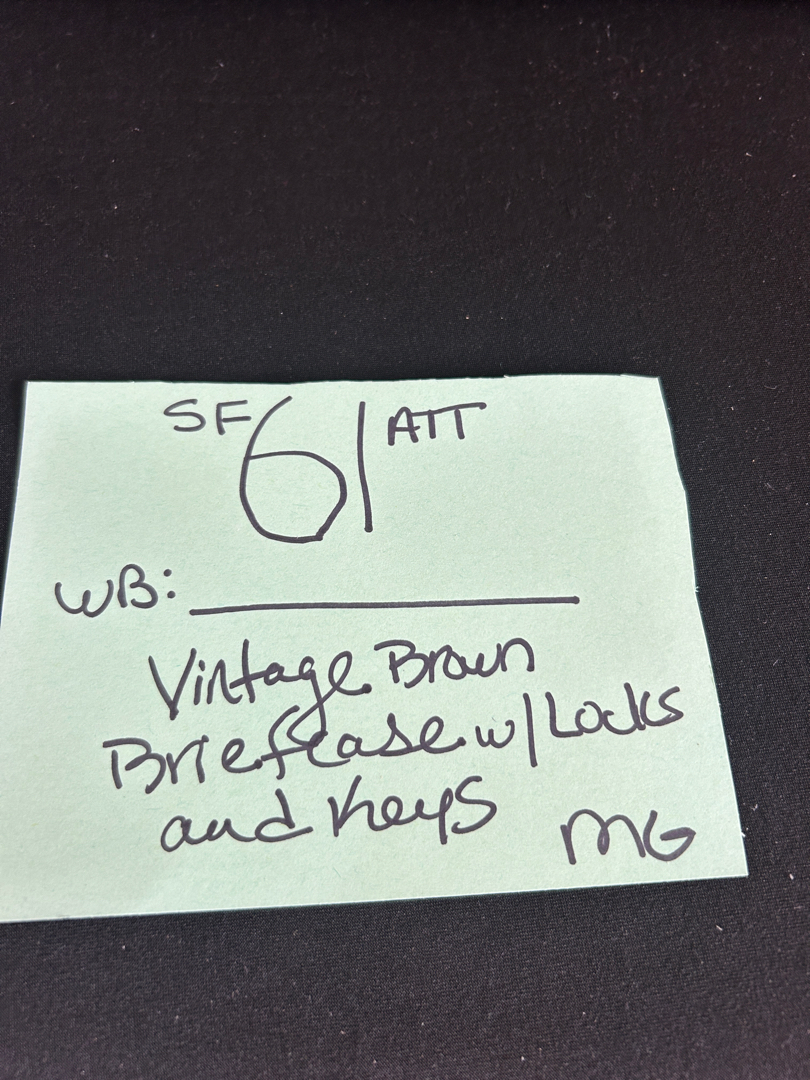 SF 61 ATT
WB: ____________
Vintage Brown
Briefcase w/ Locks
and Keys
MG